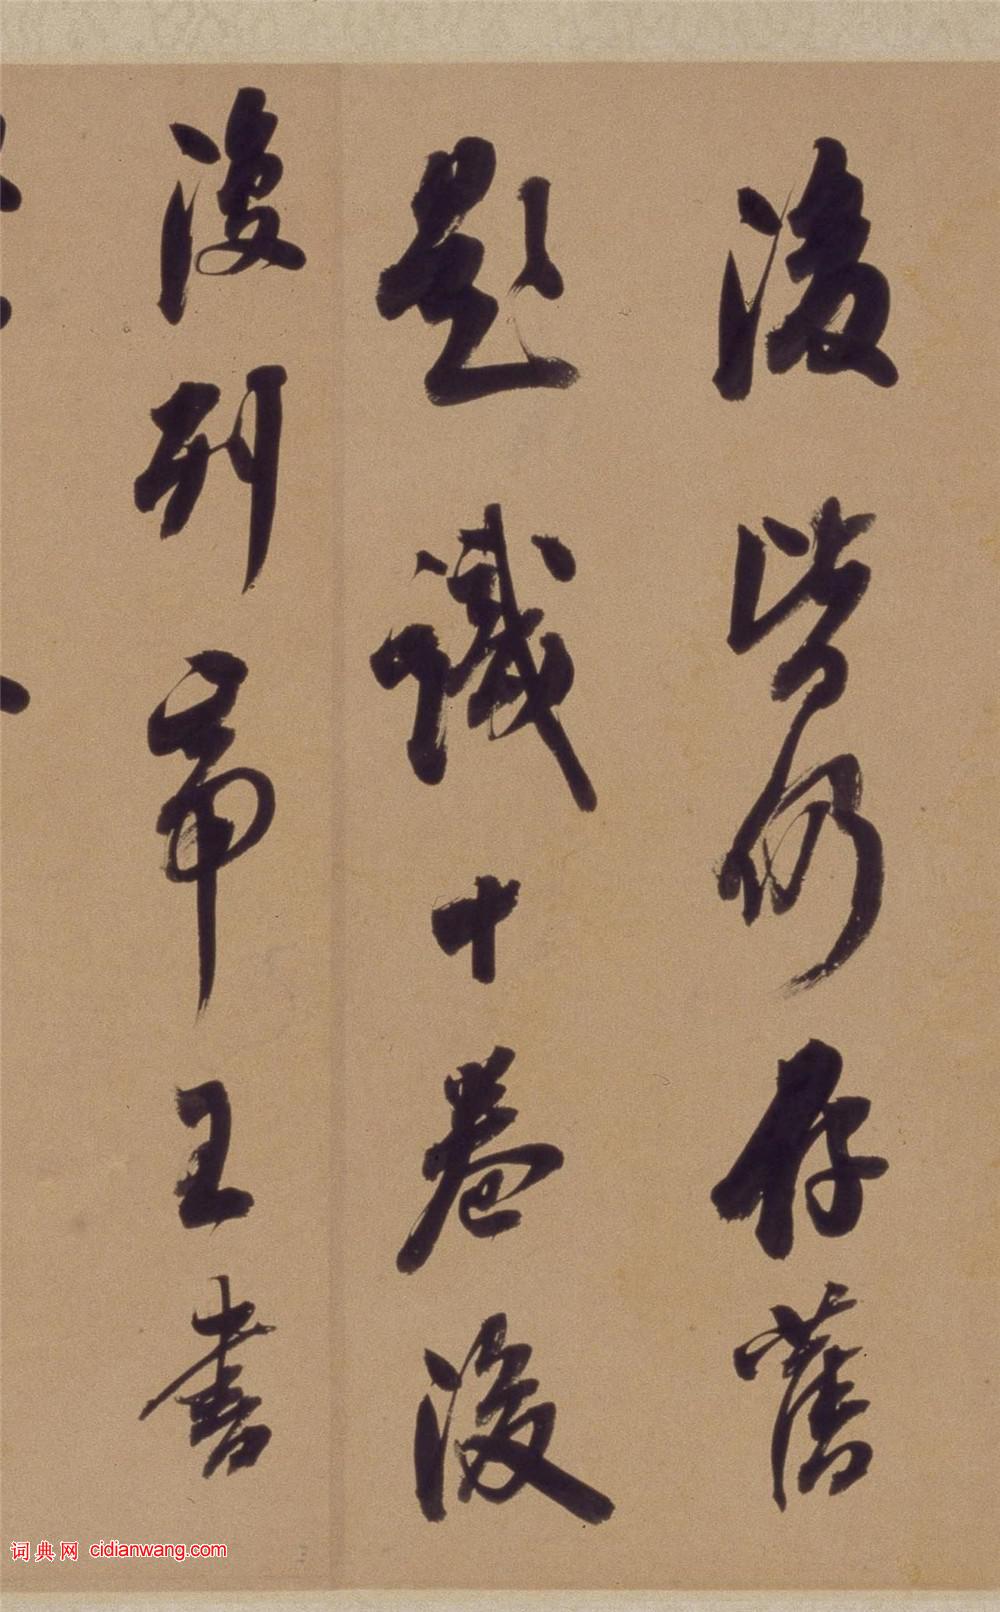 後皆仍存舊
題識十卷後
後列帝王書
词典网 cidianwang.com